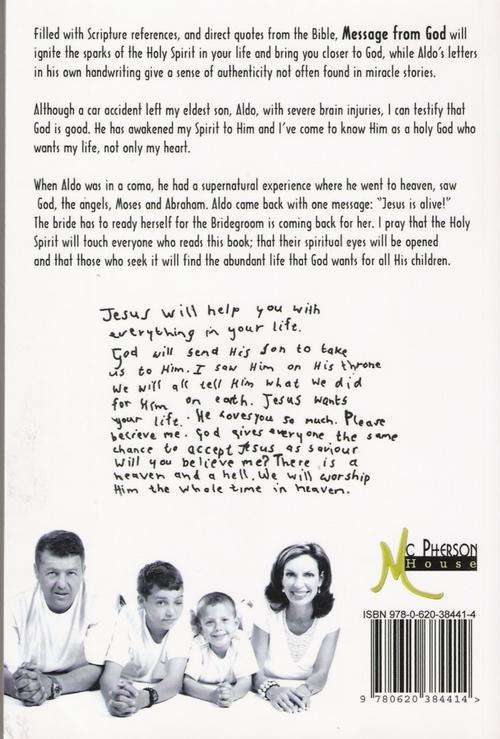 Filled with Scripture references, and direct quotes from the Bible, Message from God will
ignite the sparks of the Holy Spirit in your life and bring you closer to God, while Aldo's letters
in his own handwriting give a sense of authenticity not often found in miracle stories.
Although a car accident left my eldest son, Aldo, with severe brain injuries, I can testify that
God is good. He has awakened my Spirit to Him and I've come to know Him as a holy God who
wants my life, not only my heart.
When Aldo was in a coma, he had a supernatural experience where he went to heaven, saw
God, the angels, Moses and Abraham. Aldo came back with one message: "Jesus is alive!"
The bride has to ready herself for the Bridegroom is coming back for her. I pray that the Holy
Spirit will touch everyone who reads this book; that their spiritual eyes will be opened
and that those who seek it will find the abundant life that God wants for all His children.
Jesus will help you with
everything in your life.
God will send His son to take
us to Him. I saw Him on His throne
We will all tell Him what we did
for Him on earth. Jesus wants
your life. He loves you so much. Please
believe me. God gives everyone the same
chance to accept Jesus as saviour
Will you believe me? There is a
heaven and a hell. We will worship
Him the whole time in heaven.
Mc Pherson
House
ISBN 978-0-620-38441-4
9 780620 384414 >